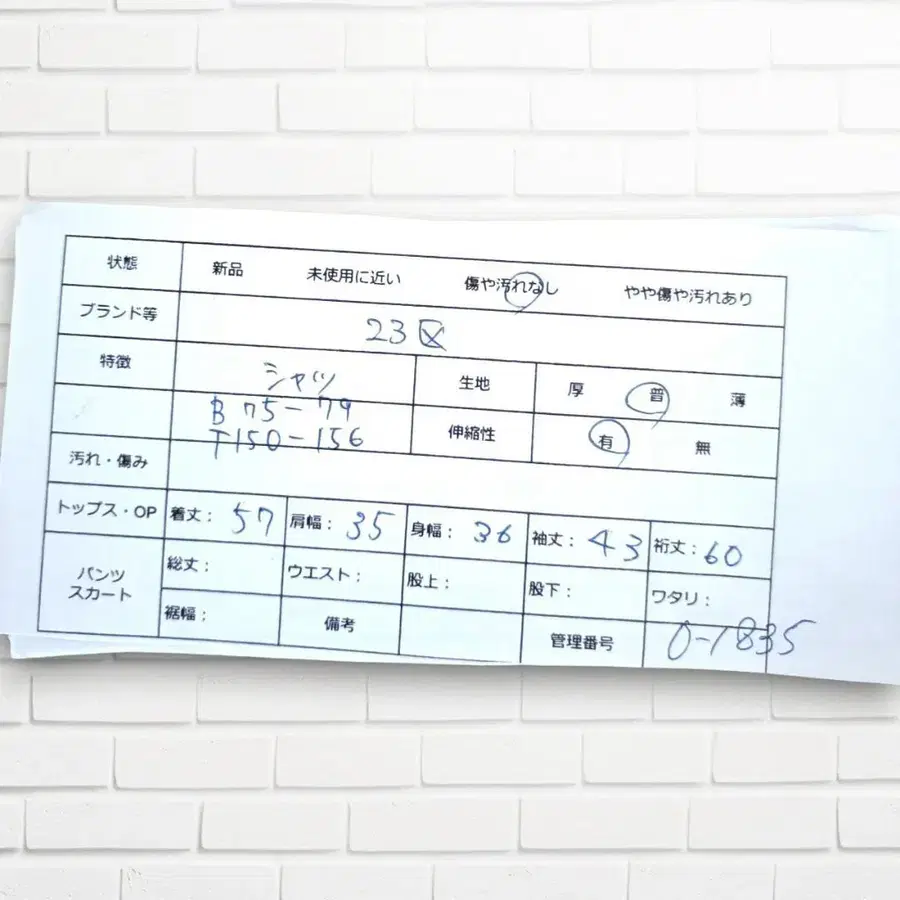 状態 新品 未使用に近い 傷や汚れなし やや傷や汚れあり
ブランド等 23区
特徴 シャツ 生地 厚 普 薄
B 75-79
T150-156 伸縮性 有 無
汚れ・傷み
トップス・OP 着丈: 57 肩幅: 35 身幅: 36 袖丈: 43 裄丈: 60
パンツ スカート 総丈: ウエスト: 股上: 股下: ワタリ:
裾幅: 備考 管理番号 0-1835